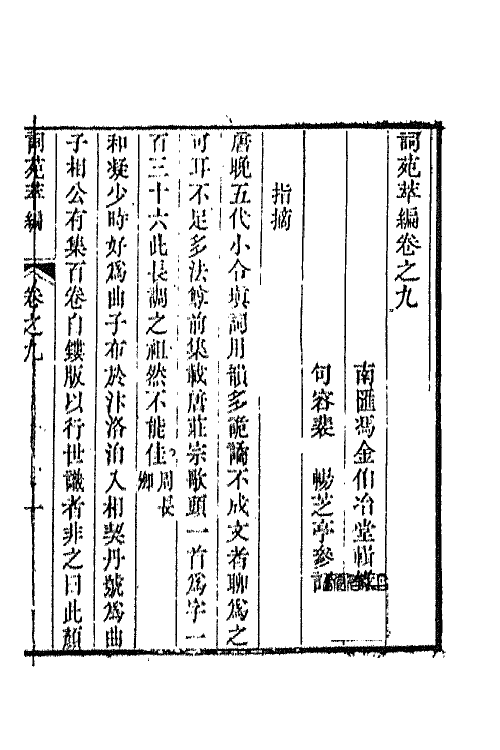 詞苑萃編卷之九
南匯馮金伯冶堂輯
句容裴　暢芝亭參
指摘
唐晚五代小令填詞用韻多詭譎不成文者聊為之
可耳不足多法尊前集載唐莊宗歌頭一首為字一
百三十六此長調之祖然不能佳周長卿
和凝少時好為曲子布於汴洛洎入相契丹號為曲
子相公有集百卷自鏤版以行世識者非之曰此顏
詞苑萃編　卷之九　一